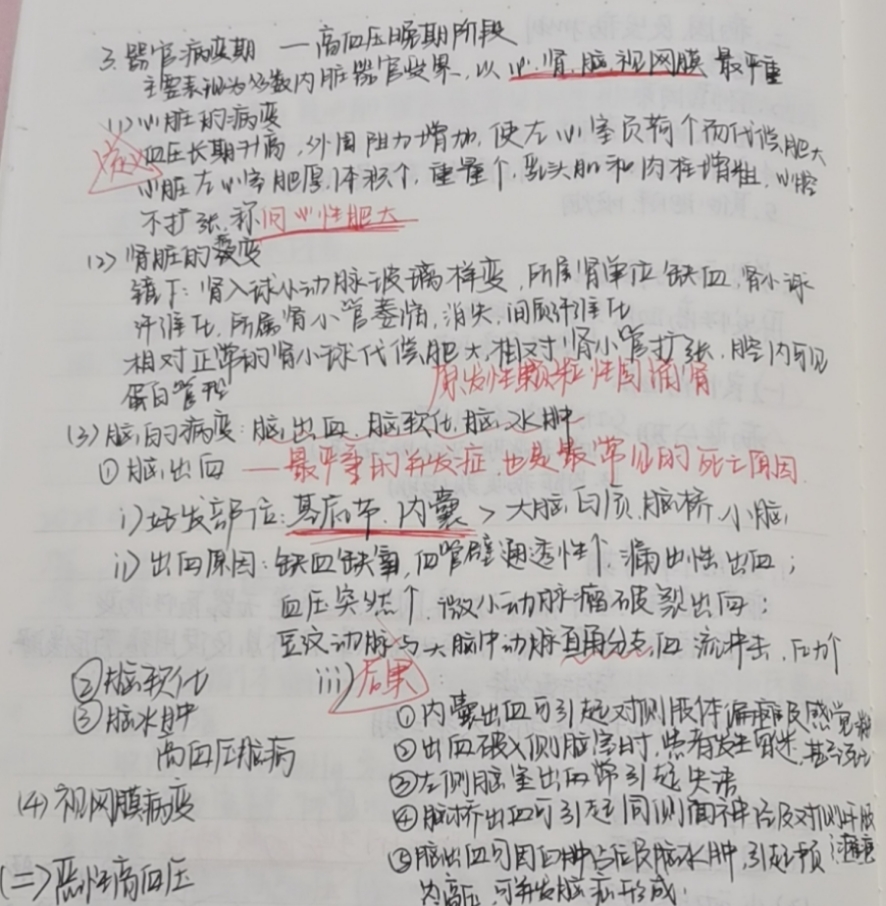 3. 器官病变期 — 高血压晚期阶段
主要表现为多数内脏器官受累，以心、肾、脑、视网膜最严重
(1) 心脏的病变
血压长期升高，外周阻力增加，使左心室负荷个而代偿肥大
心脏左心室肥厚，体积个，重量个，乳头肌和肉柱增粗，心腔
不扩张，称向心性肥大
(2) 肾脏的病变
镜下：肾入球小动脉玻璃样变，所属肾单位缺血，肾小球
纤维化，所属肾小管萎缩，消失，间质纤维化
相对正常的肾小球代偿肥大，相对肾小管扩张，腔内可见
蛋白管型
原发性颗粒性固缩肾
(3) 脑的病变：脑出血、脑软化、脑水肿
① 脑出血 — 最严重的并发症，也是最常见的死亡原因
i) 好发部位：基底节、内囊 > 大脑白质、脑桥、小脑
ii) 出血原因：缺血缺氧，血管壁通透性个，漏出性出血；
血压突然个，微小动脉瘤破裂出血；
豆纹动脉与大脑中动脉直角分支，血流冲击，压力个
iii) 后果
① 内囊出血可引起对侧肢体偏瘫及感觉
② 出血破入侧脑室时，患者发生昏迷，甚至死亡
③ 左侧脑室出血常引起失语
④ 脑桥出血可引起同侧面神经及对侧肢 瘫痪
⑤ 脑出血可因血肿占位及脑水肿，引起颅
内高压，可并发脑疝形成.
② 脑软化
③ 脑水肿
高血压脑病
(4) 视网膜病变
(二) 恶性高血压